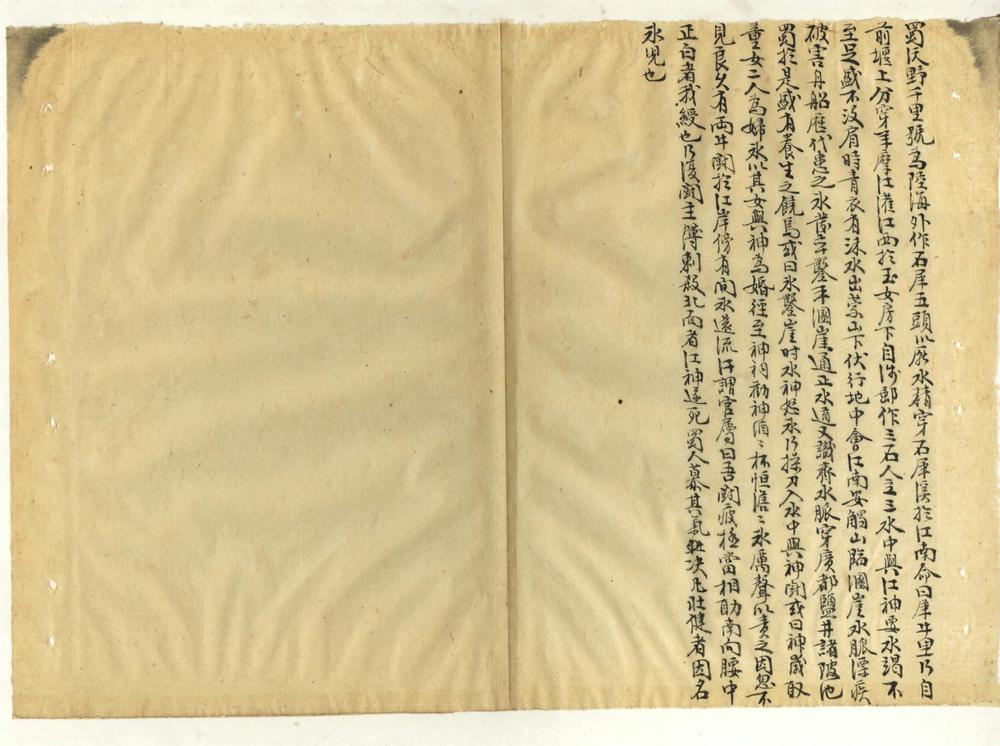 蜀沃野千里號為陸海外作石犀五頭以厭水精穿石犀溪於江南命曰犀牛里乃自
前堰上分穿羊摩江灌江西於玉女房下自涉郵作三石人立三水中與江神要水竭不
至足盛不沒肩時青衣有沫水出蒙山下伏行地中會江南安觸山脇溷崖水脈漂疾
破害舟船歷代患之水發卒鑿平溷崖通正水道又識齊水脈穿廣都鹽井諸陂池
蜀於是盛有養生之饒焉或曰氷鑿崖時水神怒氷乃操刀入水中與神鬪或曰神歲取
童女二人為婦氷以其女與神為婚徑至神祠勸神酒〻杯恒澹〻氷厲聲以責之因忽不
見良久有兩牛鬪於江岸傍有間氷還流汗謂官屬曰吾鬪疲極當相助南向腰中
正白者我綬也乃復鬪主簿刺殺北面者江神遂死蜀人慕其氣决凡壯健者因名
氷兒也